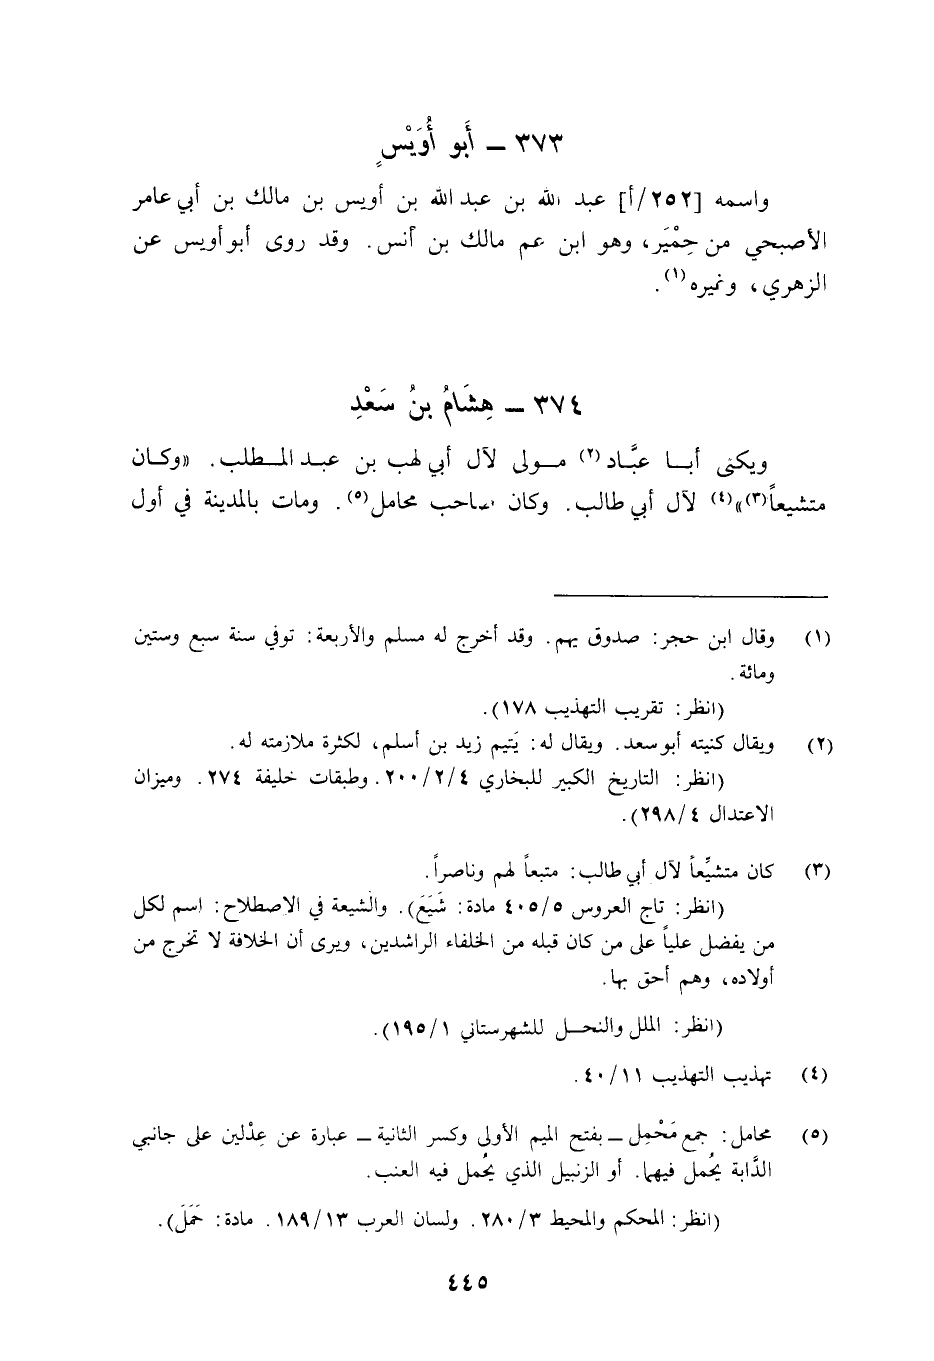 ٣٧٣ – أَبو أُوَيْسٍ
واسمه [٢٥٢/أ] عبد الله بن عبد الله بن أويس بن مالك بن أبي عامر
الأصبحي من حِمْيَر، وهو ابن عم مالك بن أنس. وقد روى أبو أويس عن
الزهري، وغيره(١).
٣٧٤ – هِشَامُ بنُ سَعْدِ
ويكنى أبا عبَّاد(٢) مولى لآل أبي لهب بن عبد المطلب. «وكان
متشيعاً(٣)»(٤) لآل أبي طالب. وكان صاحب محامل(٥). ومات بالمدينة في أول
(١) وقال ابن حجر: صدوق يهم. وقد أخرج له مسلم والأربعة: توفي سنة سبع وستين
ومائة.
(انظر: تقريب التهذيب ١٧٨).
(٢) ويقال كنيته أبو سعد. ويقال له: يَتيم زيد بن أسلم، لكثرة ملازمته له.
(انظر: التاريخ الكبير للبخاري ٢٠٠/٢/٤. وطبقات خليفة ٢٧٤. وميزان
الاعتدال ٢٩٨/٤).
(٣) كان متشيِّعاً لآل أبي طالب: متبعاً لهم وناصراً.
(انظر: تاج العروس ٤٠٥/٥ مادة: شَيَعَ). والشيعة في الاصطلاح: اسم لكل
من يفضل علياً على من كان قبله من الخلفاء الراشدين، ويرى أن الخلافة لا تخرج من
أولاده، وهم أحق بها.
(انظر: الملل والنحل للشهرستاني ١٩٥/١).
(٤) تهذيب التهذيب ٤٠/١١.
(٥) محامل: جمع مَحْمِل – بفتح الميم الأولى وكسر الثانية – عبارة عن عِدْلين على جانبي
الدَّابة يُحمل فيهما. أو الزنبيل الذي يُحمل فيه العنب.
(انظر: المحكم والمحيط ٢٨٠/٣. ولسان العرب ١٨٩/١٣. مادة: حَمَلَ).
٤٤٥